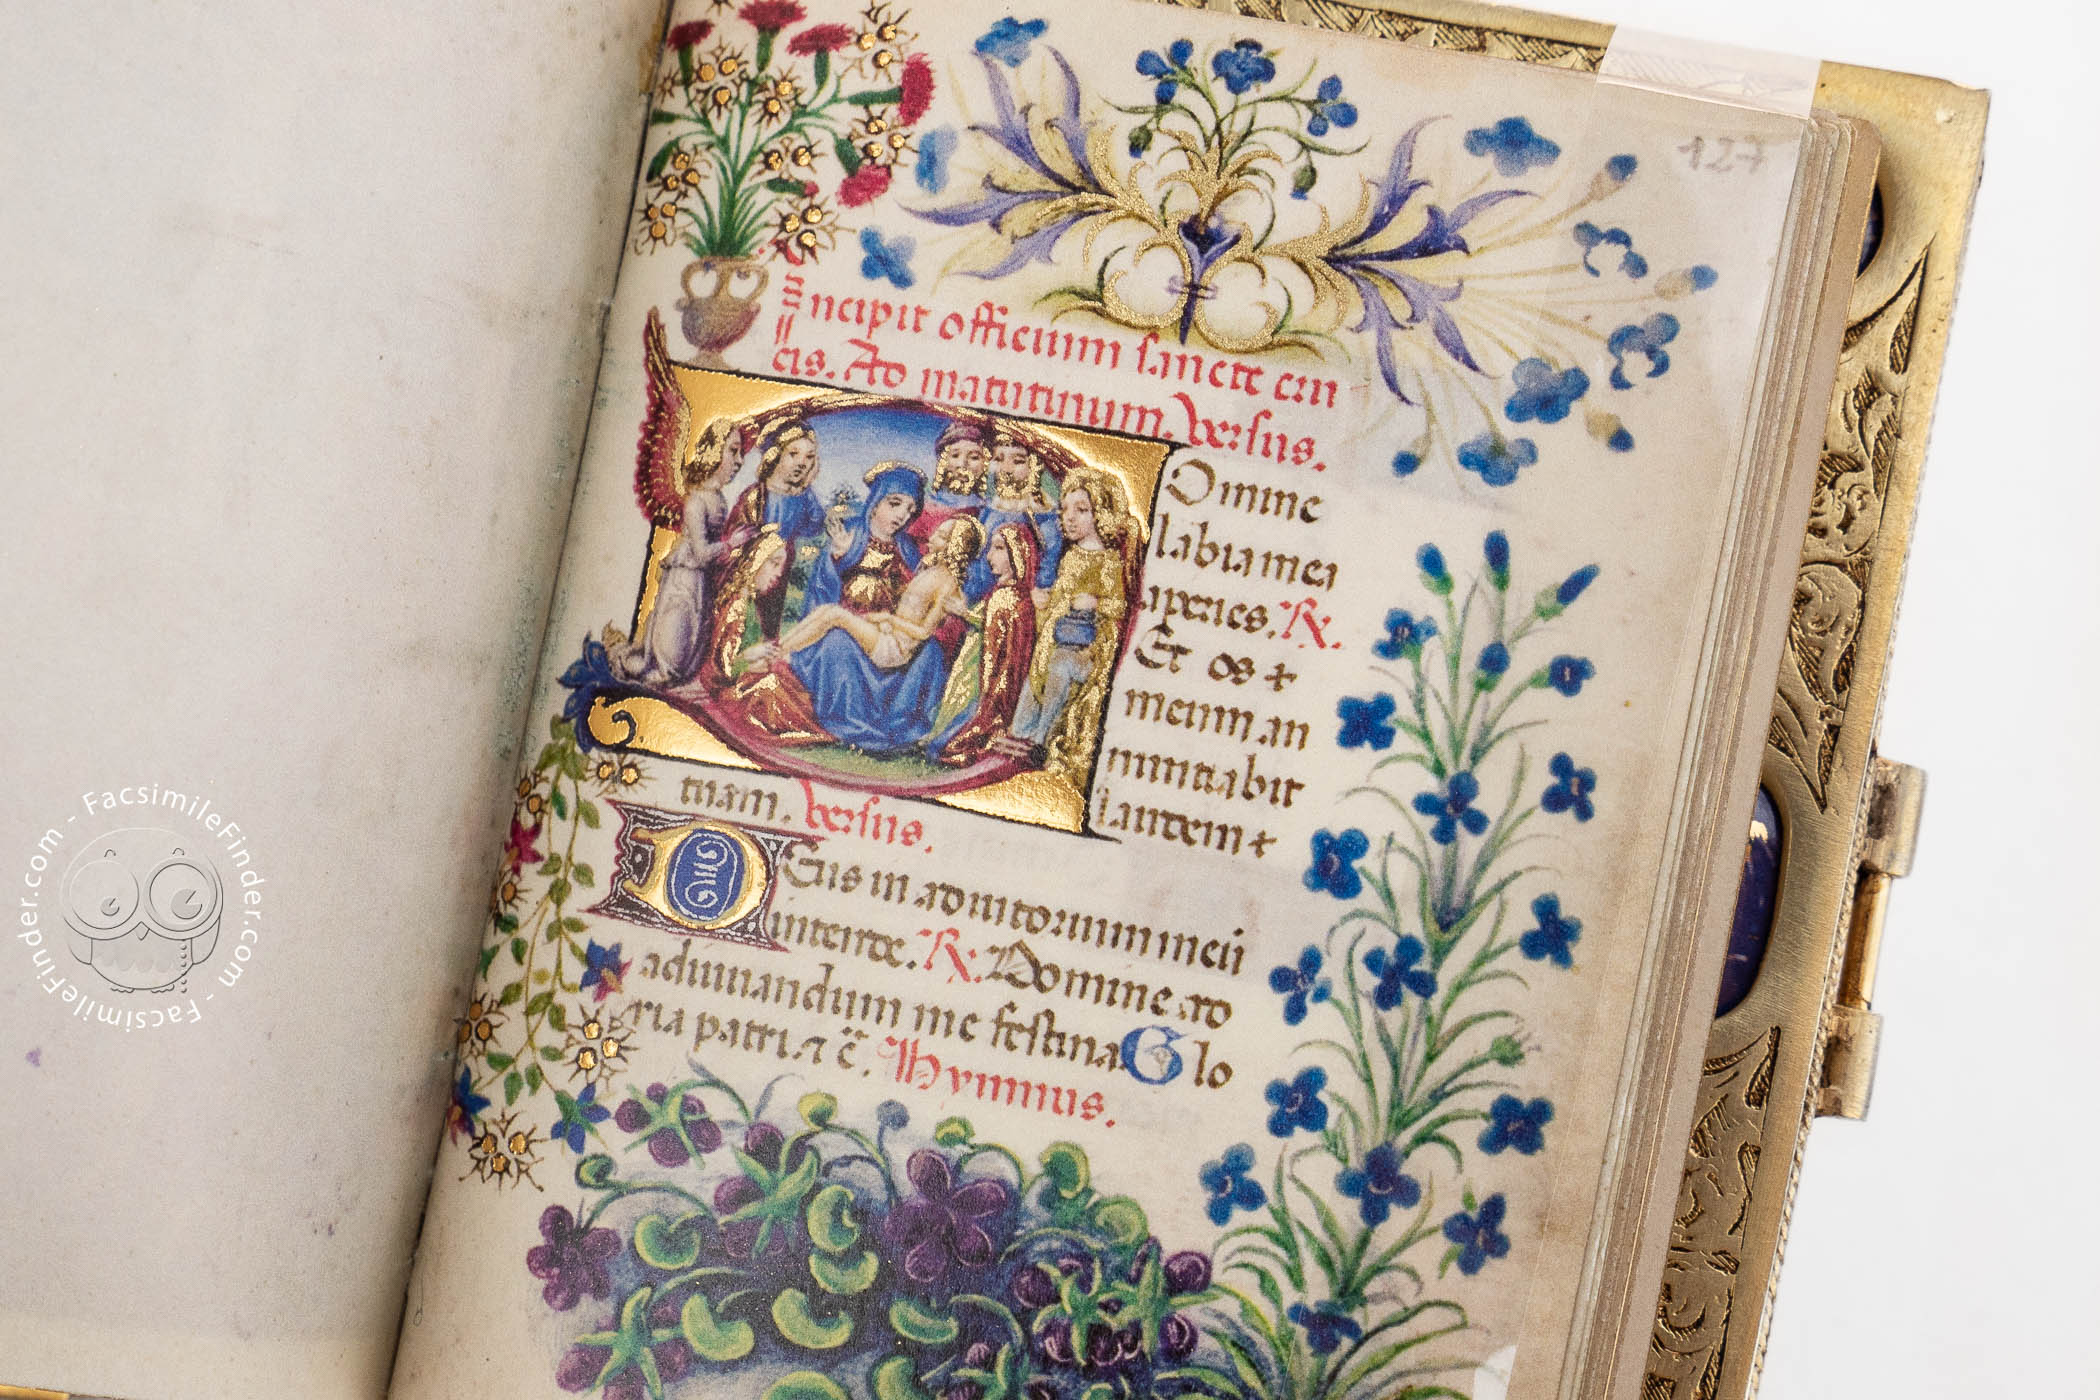 127
Incipit officium sancte cru
cis. Ad matutinum. Versus.
Domine
labia mea
aperies. R.
Et os
meum an
nuntiabit
laudem
tuam. Versus.
Deus in adiutorium meū
intende. R. Domine ad
adiuuandum me festina Glo
ria patri. ⁊ c̄. Hymnus.
FacsimileFinder.com - FacsimileFinder.com -